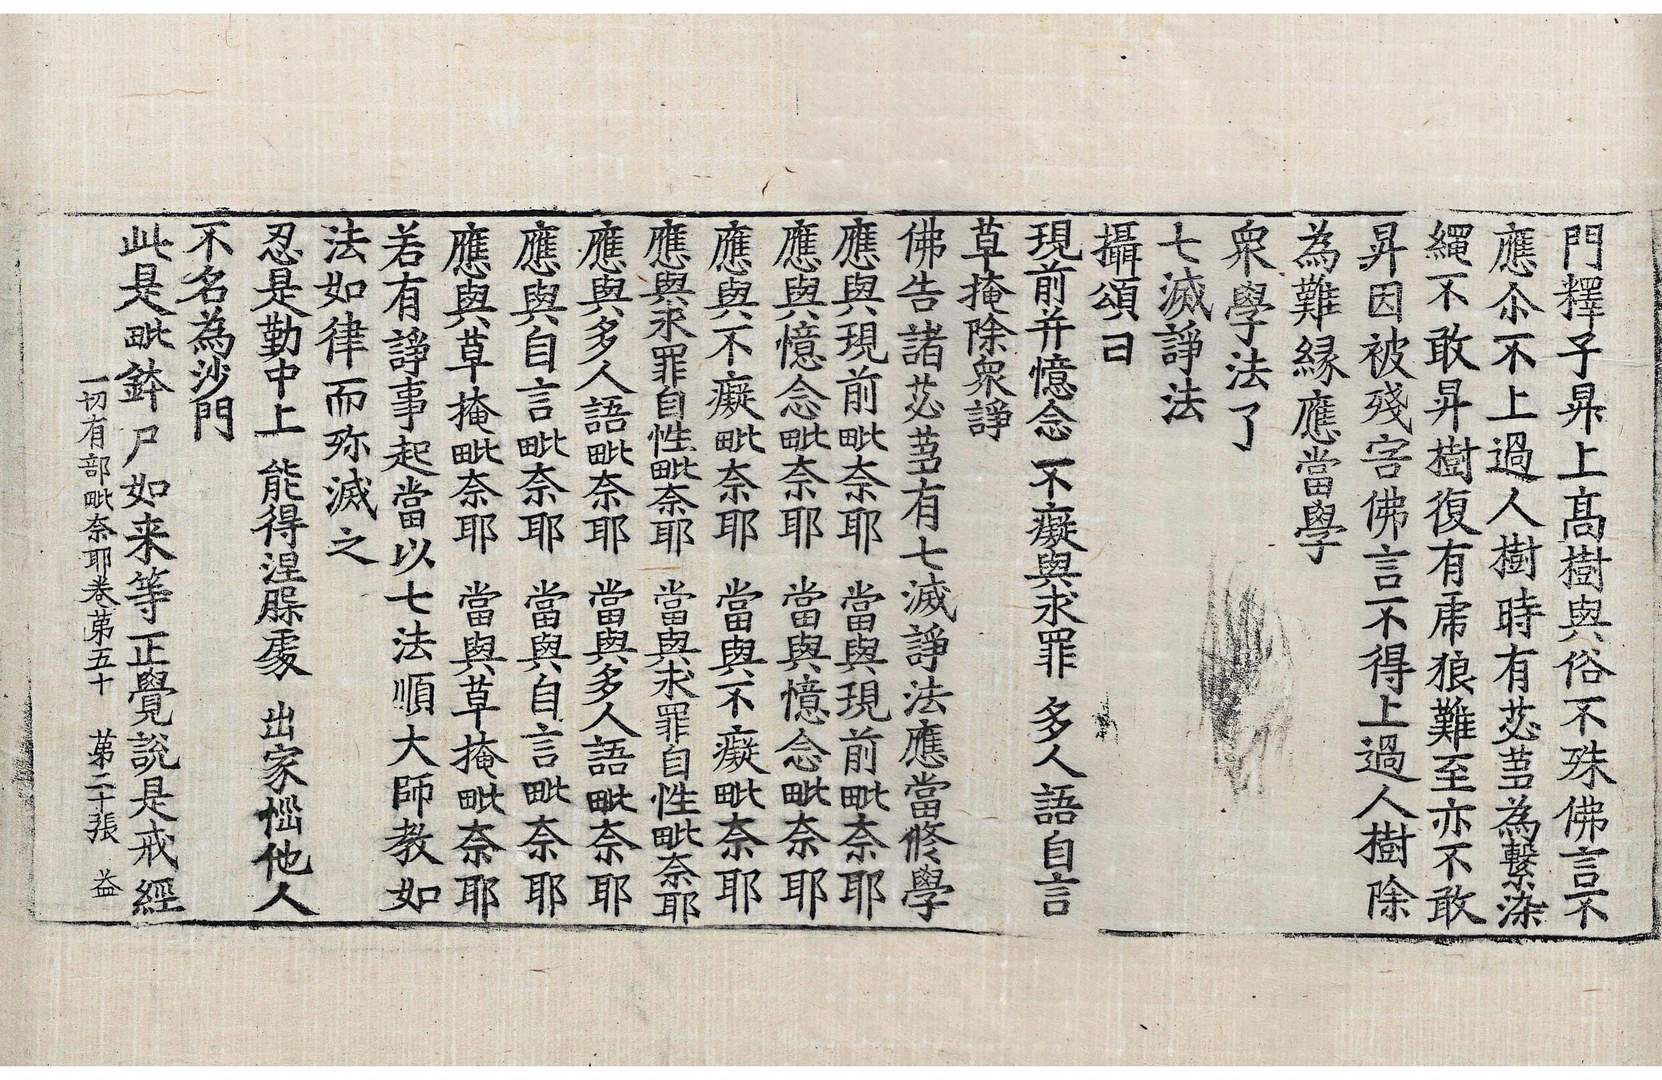 門釋子昇上髙樹與俗不殊佛言不
應尒不上過人樹時有苾芻為繫染
繩不敢昇樹復有虎狼難至亦不敢
昇因被殘害佛言不得上過人樹除
為難縁應當學
衆學法了
七滅諍法
攝頌曰
現前并憶念 不癡與求罪 多人語自言
草掩除衆諍
佛告諸苾芻有七滅諍法應當修學
應與現前毗奈耶 當與現前毗奈耶
應與憶念毗奈耶 當與憶念毗奈耶
應與不癡毗奈耶 當與不癡毗奈耶
應與求罪自性毗奈耶 當與求罪自性毗奈耶
應與多人語毗奈耶 當與多人語毗奈耶
應與自言毗奈耶 當與自言毗奈耶
應與草掩毗奈耶 當與草掩毗奈耶
若有諍事起當以七法順大師教如
法如律而殄滅之
忍是勤中上 能得涅槃處 出家惱他人
不名為沙門
此是毗鉢尸如来等正覺說是戒經
一切有部毗奈耶卷第五十 第二十張 益